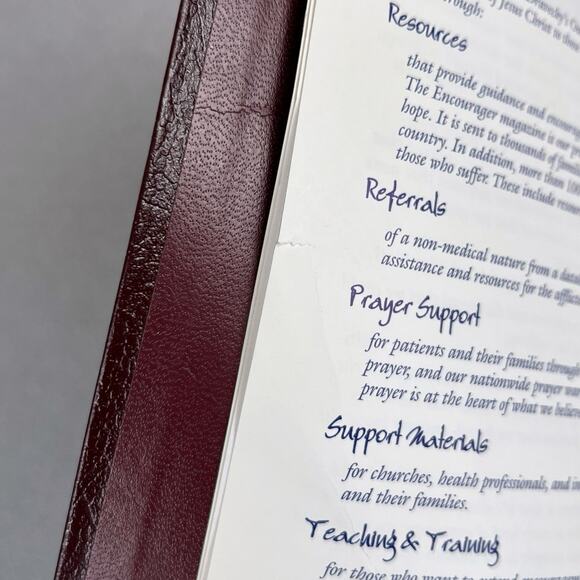 of Jesus Christ to those
through:
Resources
that provide guidance and
The Encourager magazine is our
hope. It is sent to thousands of
country. In addition, more than
those who suffer. These include
Referrals
of a non-medical nature from a
assistance and resources for the
Prayer Support
for patients and their families through
prayer, and our nationwide prayer
prayer is at the heart of what we
Support Materials
for churches, health professionals, and
and their families.
Teaching & Training
for those who want to